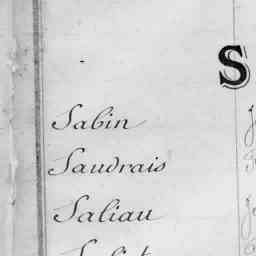 S
Sabin
Saudrais
Saliau